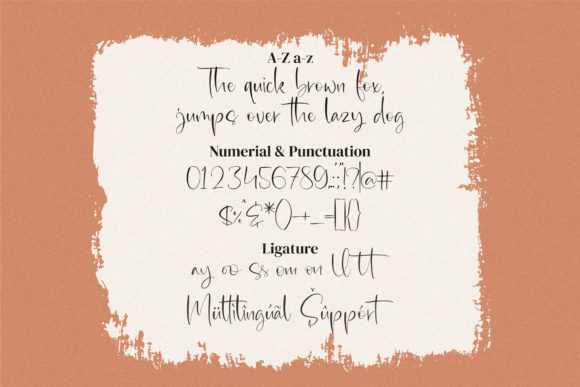 A-Z a-z
The quick brown fox,
jumps over the lazy dog
Numerial & Punctuation
0123456789,.:;'"!?|@#
$%^&*()-+_=[]{}
Ligature
ay oo ss om on Utt
Müttïlîngúãl Šûppórt